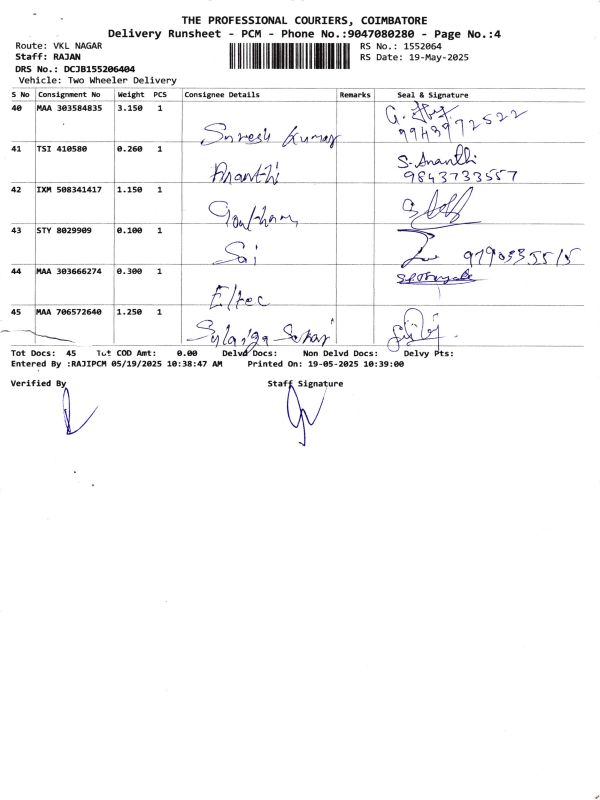 THE PROFESSIONAL COURIERS, COIMBATORE
Delivery Runsheet - PCM - Phone No.:9047080280 - Page No.:4
Route: VKL NAGAR RS No.: 1552064
Staff: RAJAN RS Date: 19-May-2025
DRS No.: DCJB155206404
Vehicle: Two Wheeler Delivery
S No Consignment No Weight PCS Consignee Details Remarks Seal & Signature
40 MAA 303584835 3.150 1
Suresh Kumar
41 TSI 410580 0.260 1 S. Ananthi
Ananthi 9843733557
42 IXM 508341417 1.150 1
Goutham
43 STY 8029909 0.100 1
Sai
44 MAA 303666274 0.300 1
Eltec
45 MAA 706572640 1.250 1
Tot Docs: 45 Tot COD Amt: 0.00 Delvd Docs: Non Delvd Docs: Delvy Pts:
Entered By :RAJIPCM 05/19/2025 10:38:47 AM Printed On: 19-05-2025 10:39:00
Verified By Staff Signature